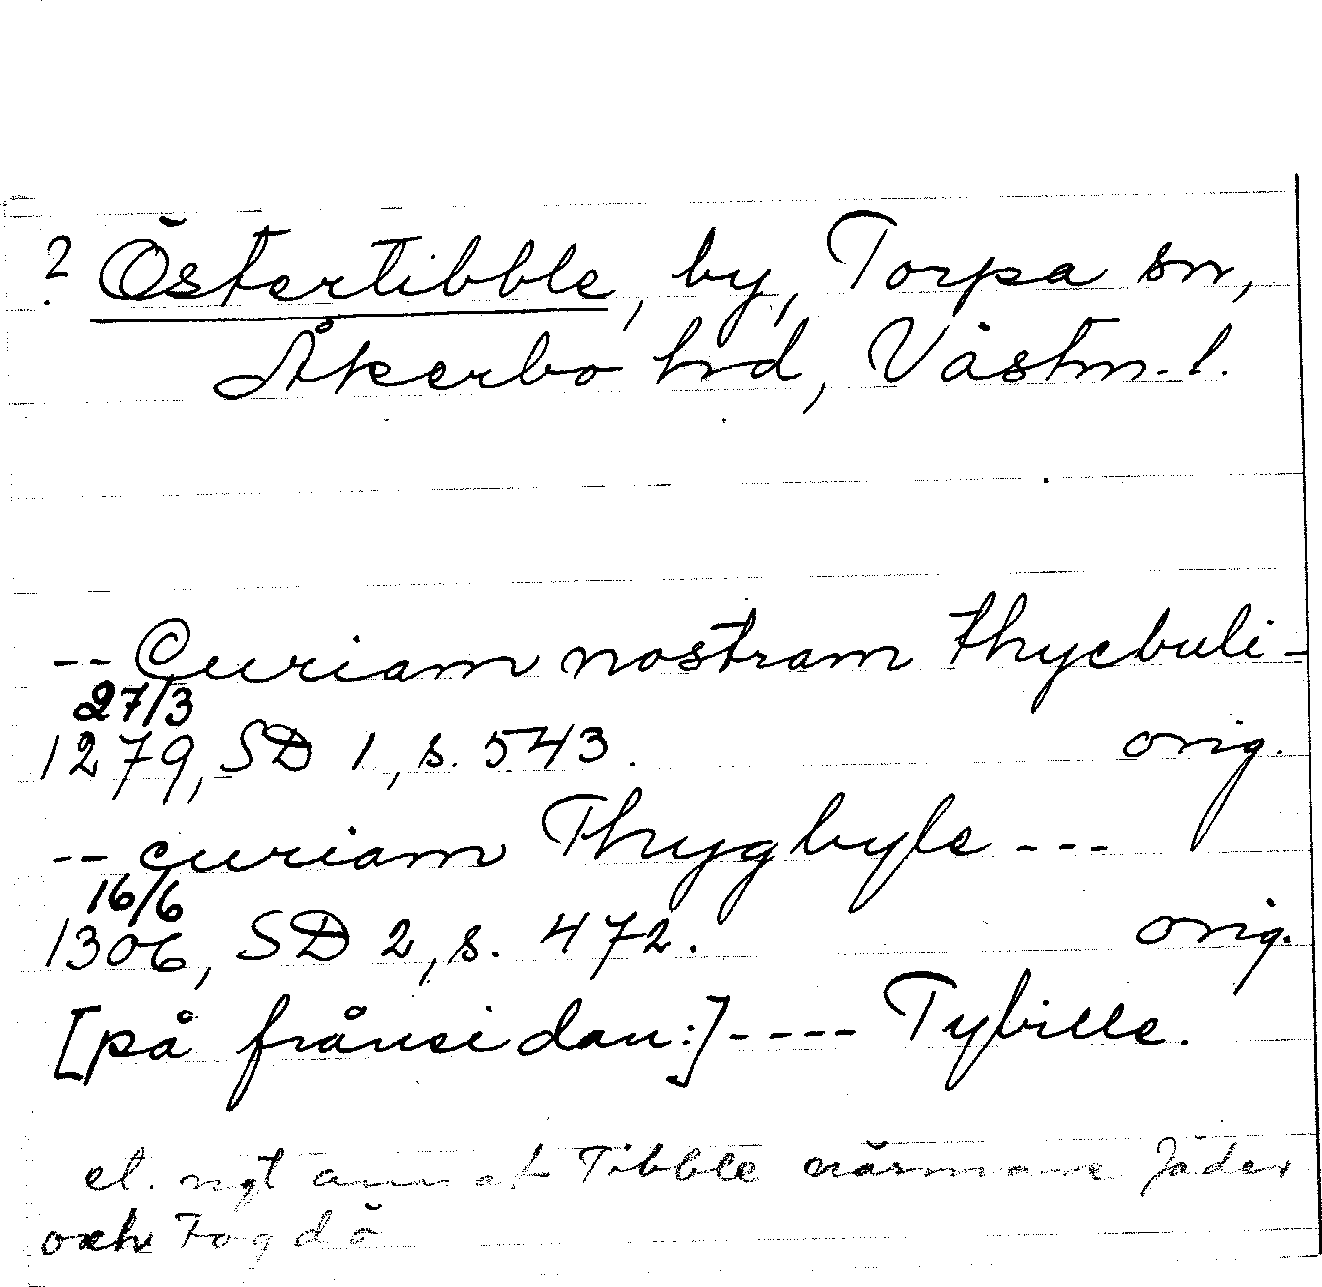 ? Östertibble, by, Torpa sn,
Åkerbo hrd, Västm. l.
-- Curiam nostram thycbuli-
27/3
1279, SD 1, s. 543. orig.
-- curiam Thygbyle ---
16/6
1306, SD 2, s. 472. orig.
[på frånsidan:] ---- Tybille.
el. ngt annat Tibble närmare Jäder
och Fogdö